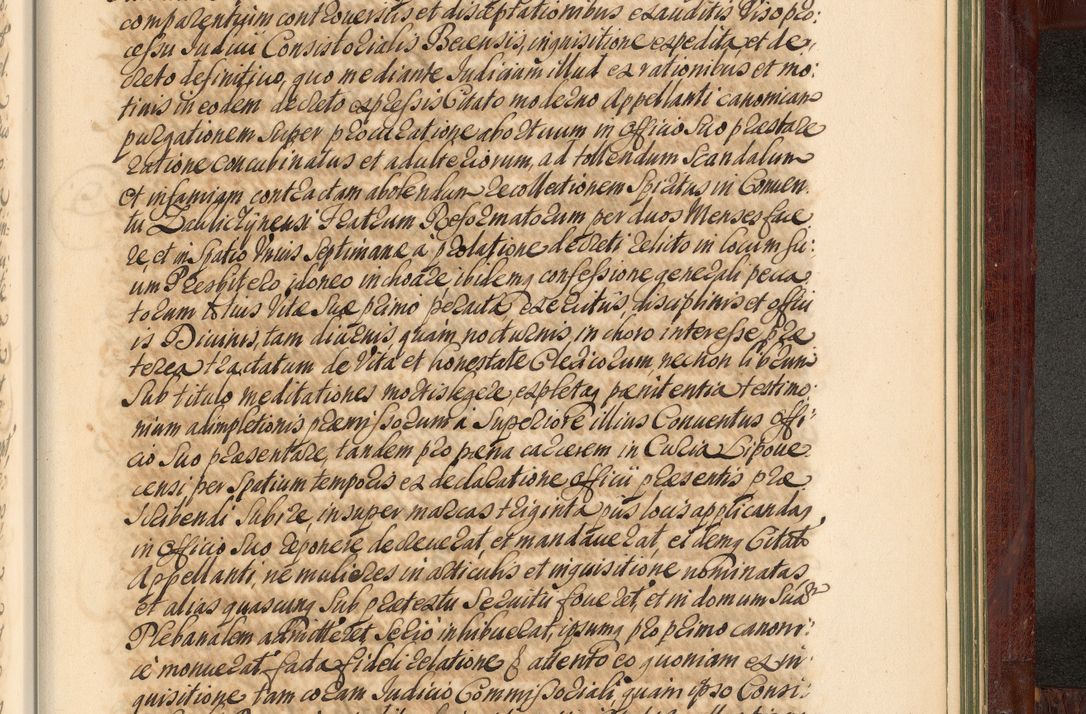 comparentium controversiis et disceptationibus exauditis viso pro:
cessu Judicii Consistorialis Becensis, inquisitione expedita et de:
creto definitivo, quo mediante Judicium illud ex rationibus et mo:
tivis in eodem decreto expressis Citato moderno Appellanti canonicam
purgationem super procuratione abortuum in officio suo praestare
ratione concubinatus et adulteriorum, ad tollendum scandalum
et infamiam contractam abolendam recollectionem Spiritus in Conven
tu Fratrum Reformatorum per duos Menses face
re, et in spatio unius septimanae a prolatione decreti relicto in locum su:
um Presbitero idoneo inchoare ibidemq confessione generali pecca
torum totius vitae suae primo peracta exercitiis, disciplinis et offici
is Divinis, tam diurnis, quam nocturnis, in choro interesse prae
terea tractatum de vita et honestate Clericorum, necnon librum
sub titulo meditationes mortis legere expletaq paenitentia testimo:
nium adimpletionis praemissorum a Superiore illius Conventus offi:
cio suo praesentare, tandem pro paena carcerem in Curia Lipove
censi per spatium temporis ex declaratione officii praesentis prae
scribendi subire, insuper marcas triginta piis locis applicandas
in officio suo reponere decreverat, et mandaverat, et demq Citato
Appellanti, ne mulieres in articulis et inquisitione nominatas
et alias quascunq sub praetextu servitii foveret, et in domum suam
Plebanalem admitteret serio inhibuerat, ipsumq pro primo canoni:
ce monuerat facta fideli relatione & attento eo quoniam ex in:
quisitione tam coram Judicio Commissoriali, quam ipso Consi: